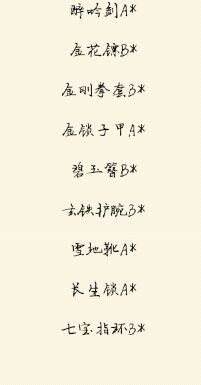 醉吟剑A*
金花镖B*
金刚拳套B*
金锁子甲A*
碧玉簪B*
玄铁护腕B*
雪地靴A*
长生锁A*
七宝指环B*